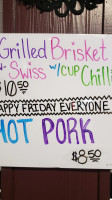 Grilled Brisket
n' Swiss w/CUP Chilli
$10.50
HAPPY FRIDAY EVERYONE
HOT PORK
$8.50